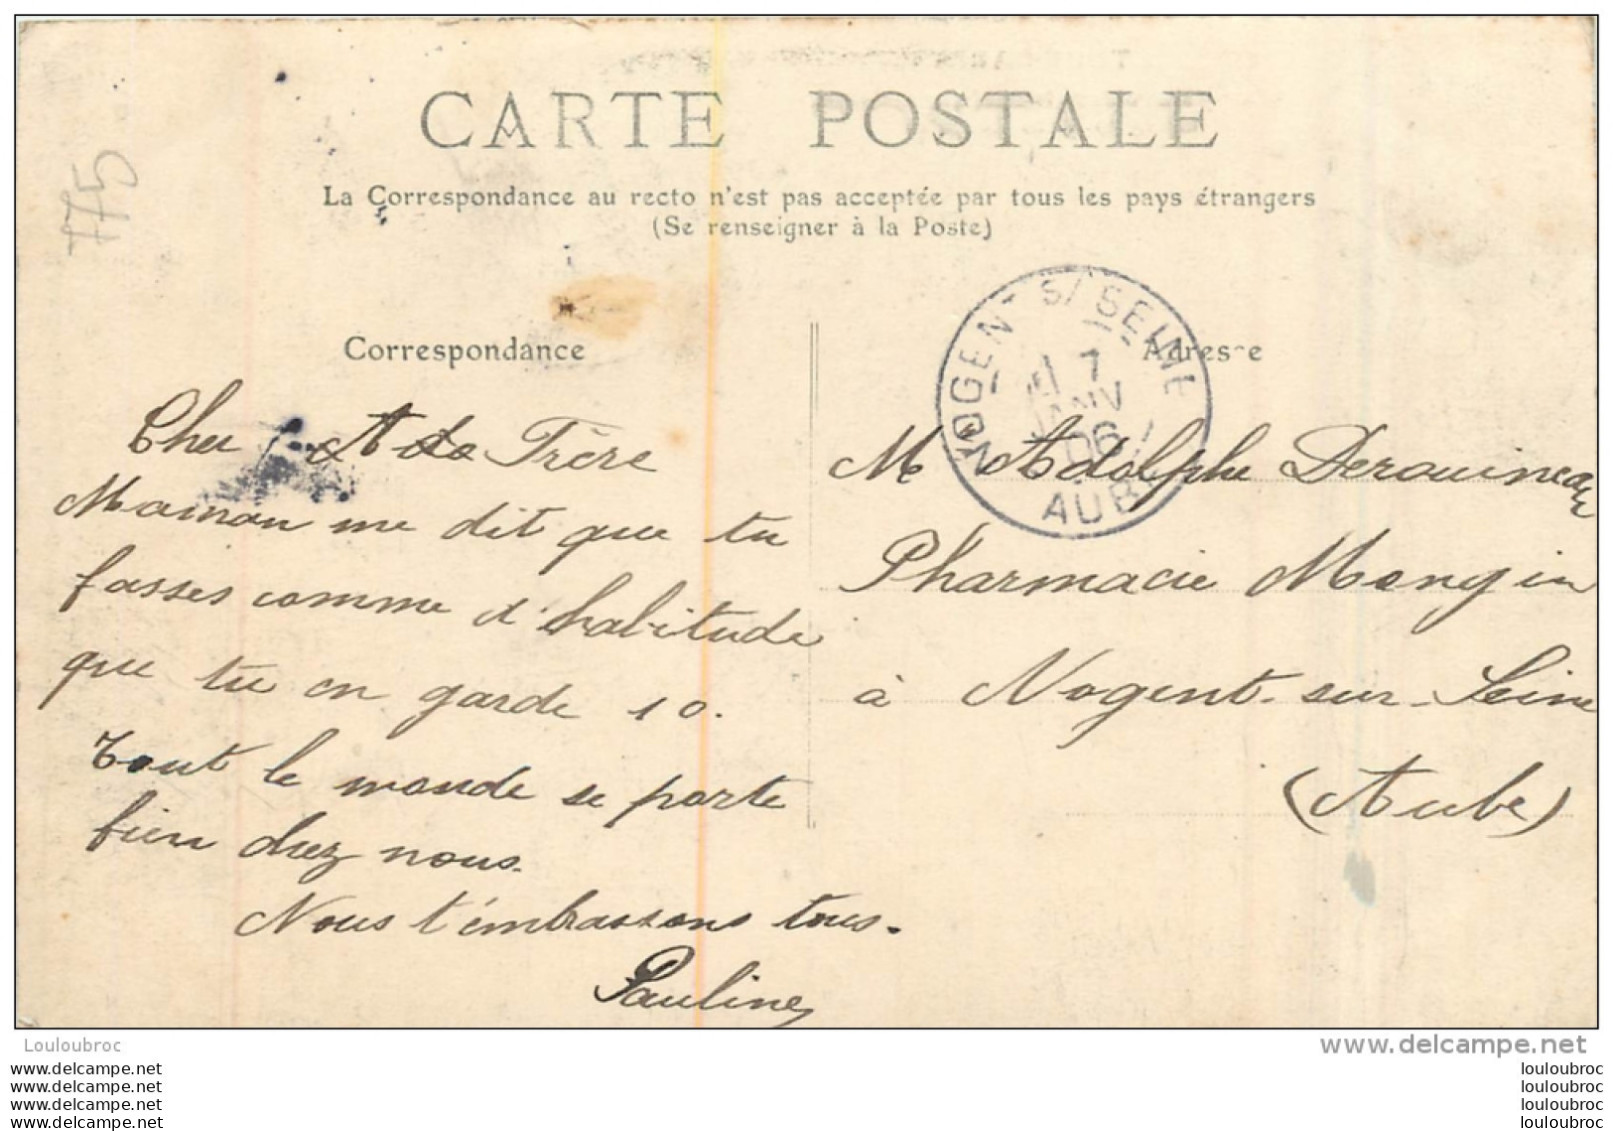 775
CARTE POSTALE
La Correspondance au recto n'est pas acceptée par tous les pays étrangers
(Se renseigner à la Poste)
Correspondance
Cher Frère
Maman me dit que tu
fasses comme d'habitude
que tu en garde 10.
Tout le monde se porte
bien chez nous.
Nous t'embrassons tous.
Pauline
NOGENT S/ SEINE
7
JANV
06
AUBE
Adresse
M Adolphe Derouineau
Pharmacie Mengin
à Nogent-sur-Seine
(Aube)
Louloubroc
www.delcampe.net
www.delcampe.com
www.delcampe.com
www.delcampe.com
www.delcampe.com
louloubroc
louloubroc
louloubroc
louloubroc